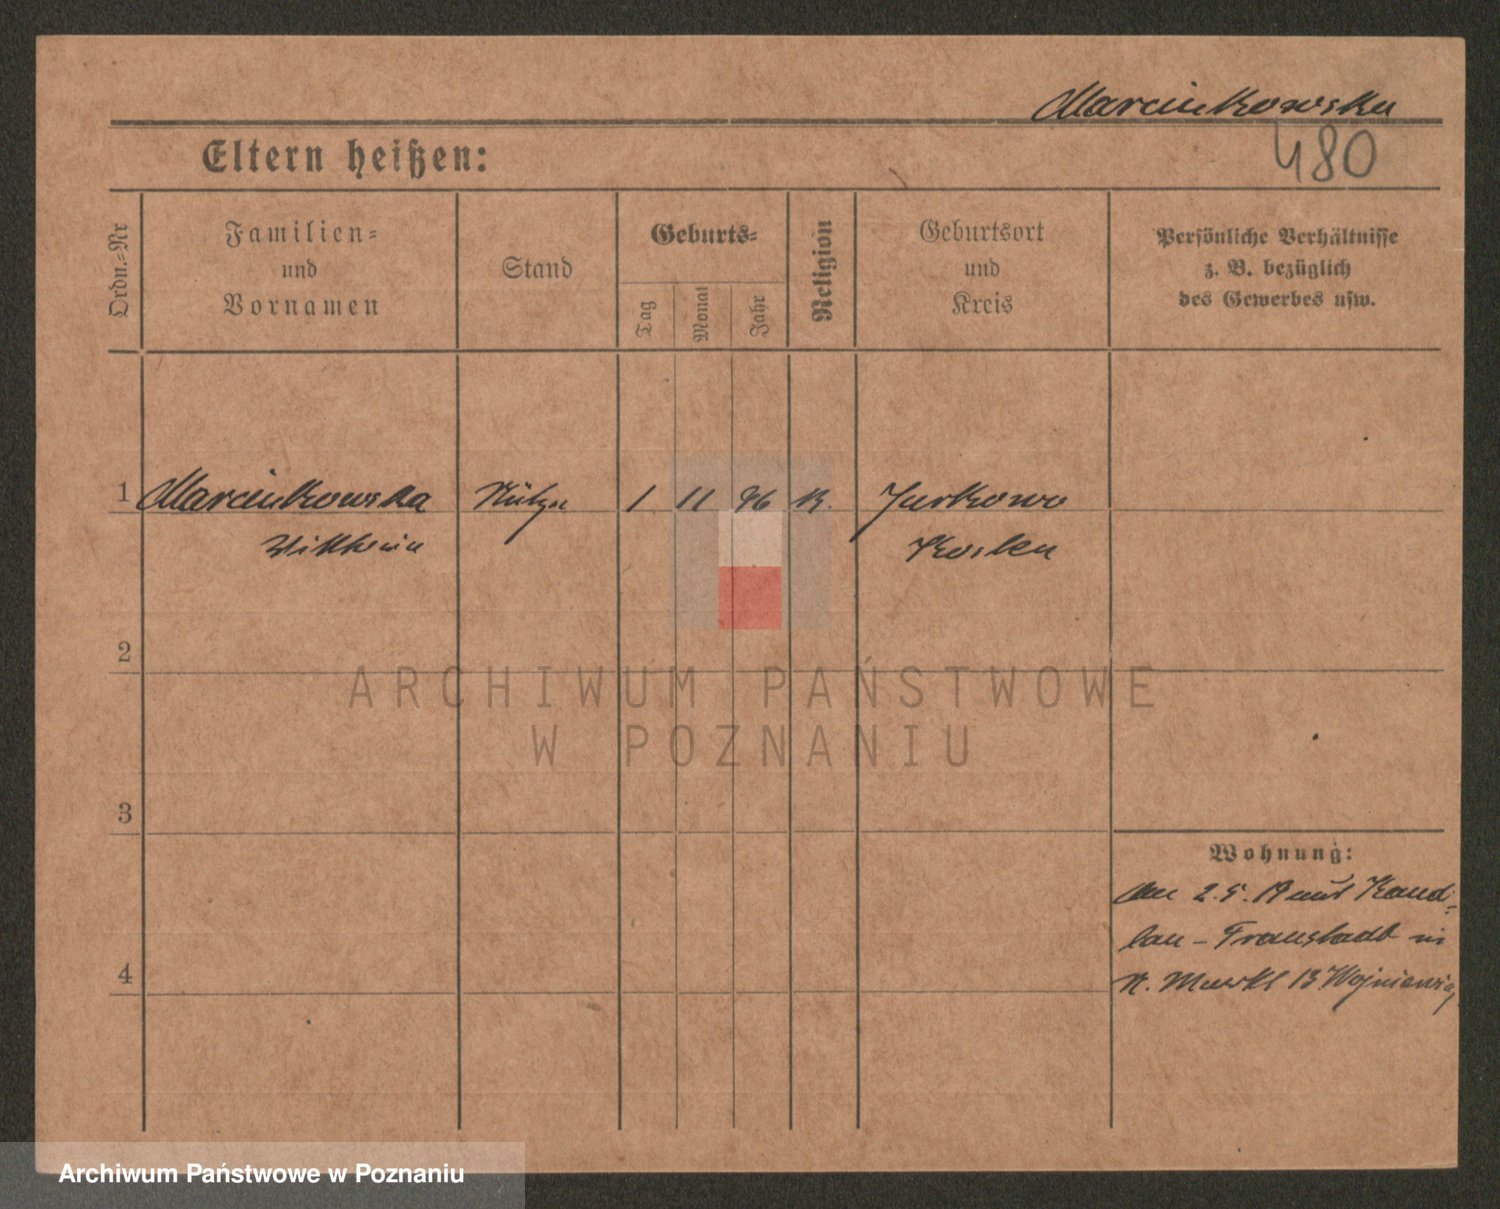 Marcinkowska
480
Eltern heißen:
Ordn.-Nr
Familien-
und
Vornamen
Stand
Geburts-
Tag
Monat
Jahr
Religion
Geburtsort
und
Kreis
Persönliche Verhältnisse
z. B. bezüglich
des Gewerbes usw.
1 Marcinkowska 1 11 96 K. Jurkowo
Kosten
2
3
4
Wohnung:
2. 5. 19 aus Kand-
lau - Fraustadt in
N. Markt 13
ARCHIWUM PAŃSTWOWE
W POZNANIU
Archiwum Państwowe w Poznaniu